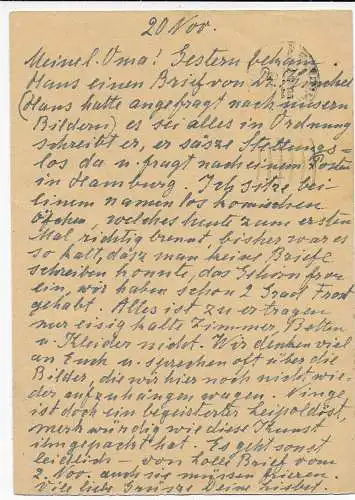 20 Nov.
Meine l. Oma! Gestern bekam
Hans einen Brief von Dr.
(Hans hatte angefragt nach unsern
Bildern) es sei alles in Ordnung
schreibt er, er säsze Stellungs=
los da u. fragt nach einem Posten
in Hamburg. Ich sitze bei
einem namenlos komischen
Öfchen, welches heute zum ersten
Mal richtig brennt, bisher war es
so kalt, dasz man keine Briefe
schreiben konnte, das Gehirn fror
ein, wir haben schon 2 Grad Frost
gehabt. Alles ist zu ertragen
nur eisig kalte Zimmer, Betten
u. Kleider nicht. Wir denken viel
an Euch u. sprechen oft über die
Bilder, die wir hier noch nicht wie-
der aufzuhängen wagen.
ist doch ein begeisterter
merkwürdig wie diese Kunst
ihn gepackt hat. Es geht sonst
leidlich – von Brief vom
2. Nov. auch sie müssen frieren.
Viele liebe Grüsze Deine